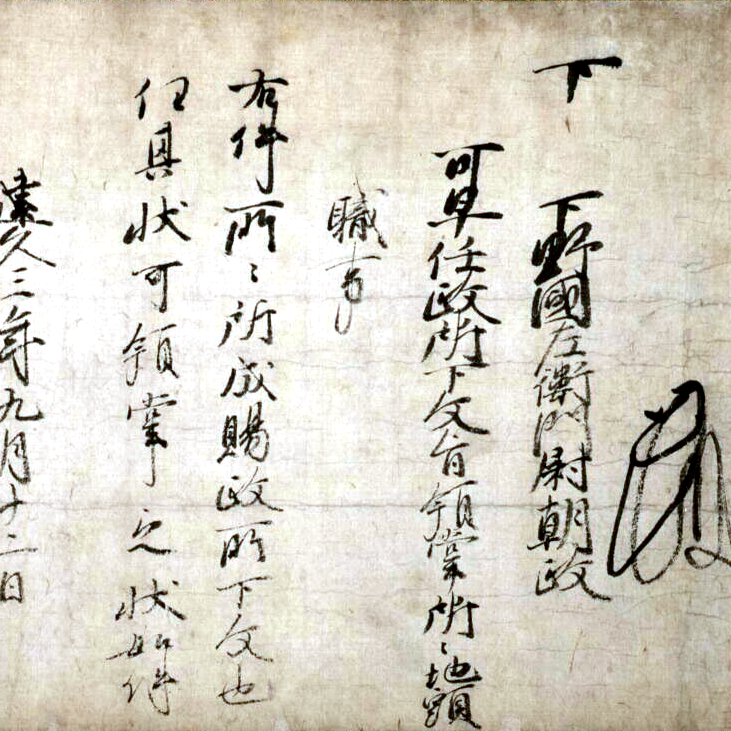 下　下野國左衛門尉朝政
可早任政所下文旨領掌所々地頭
職事
右件所々所成賜政所下文也
任其状可領掌之状如件
建久三年九月十二日